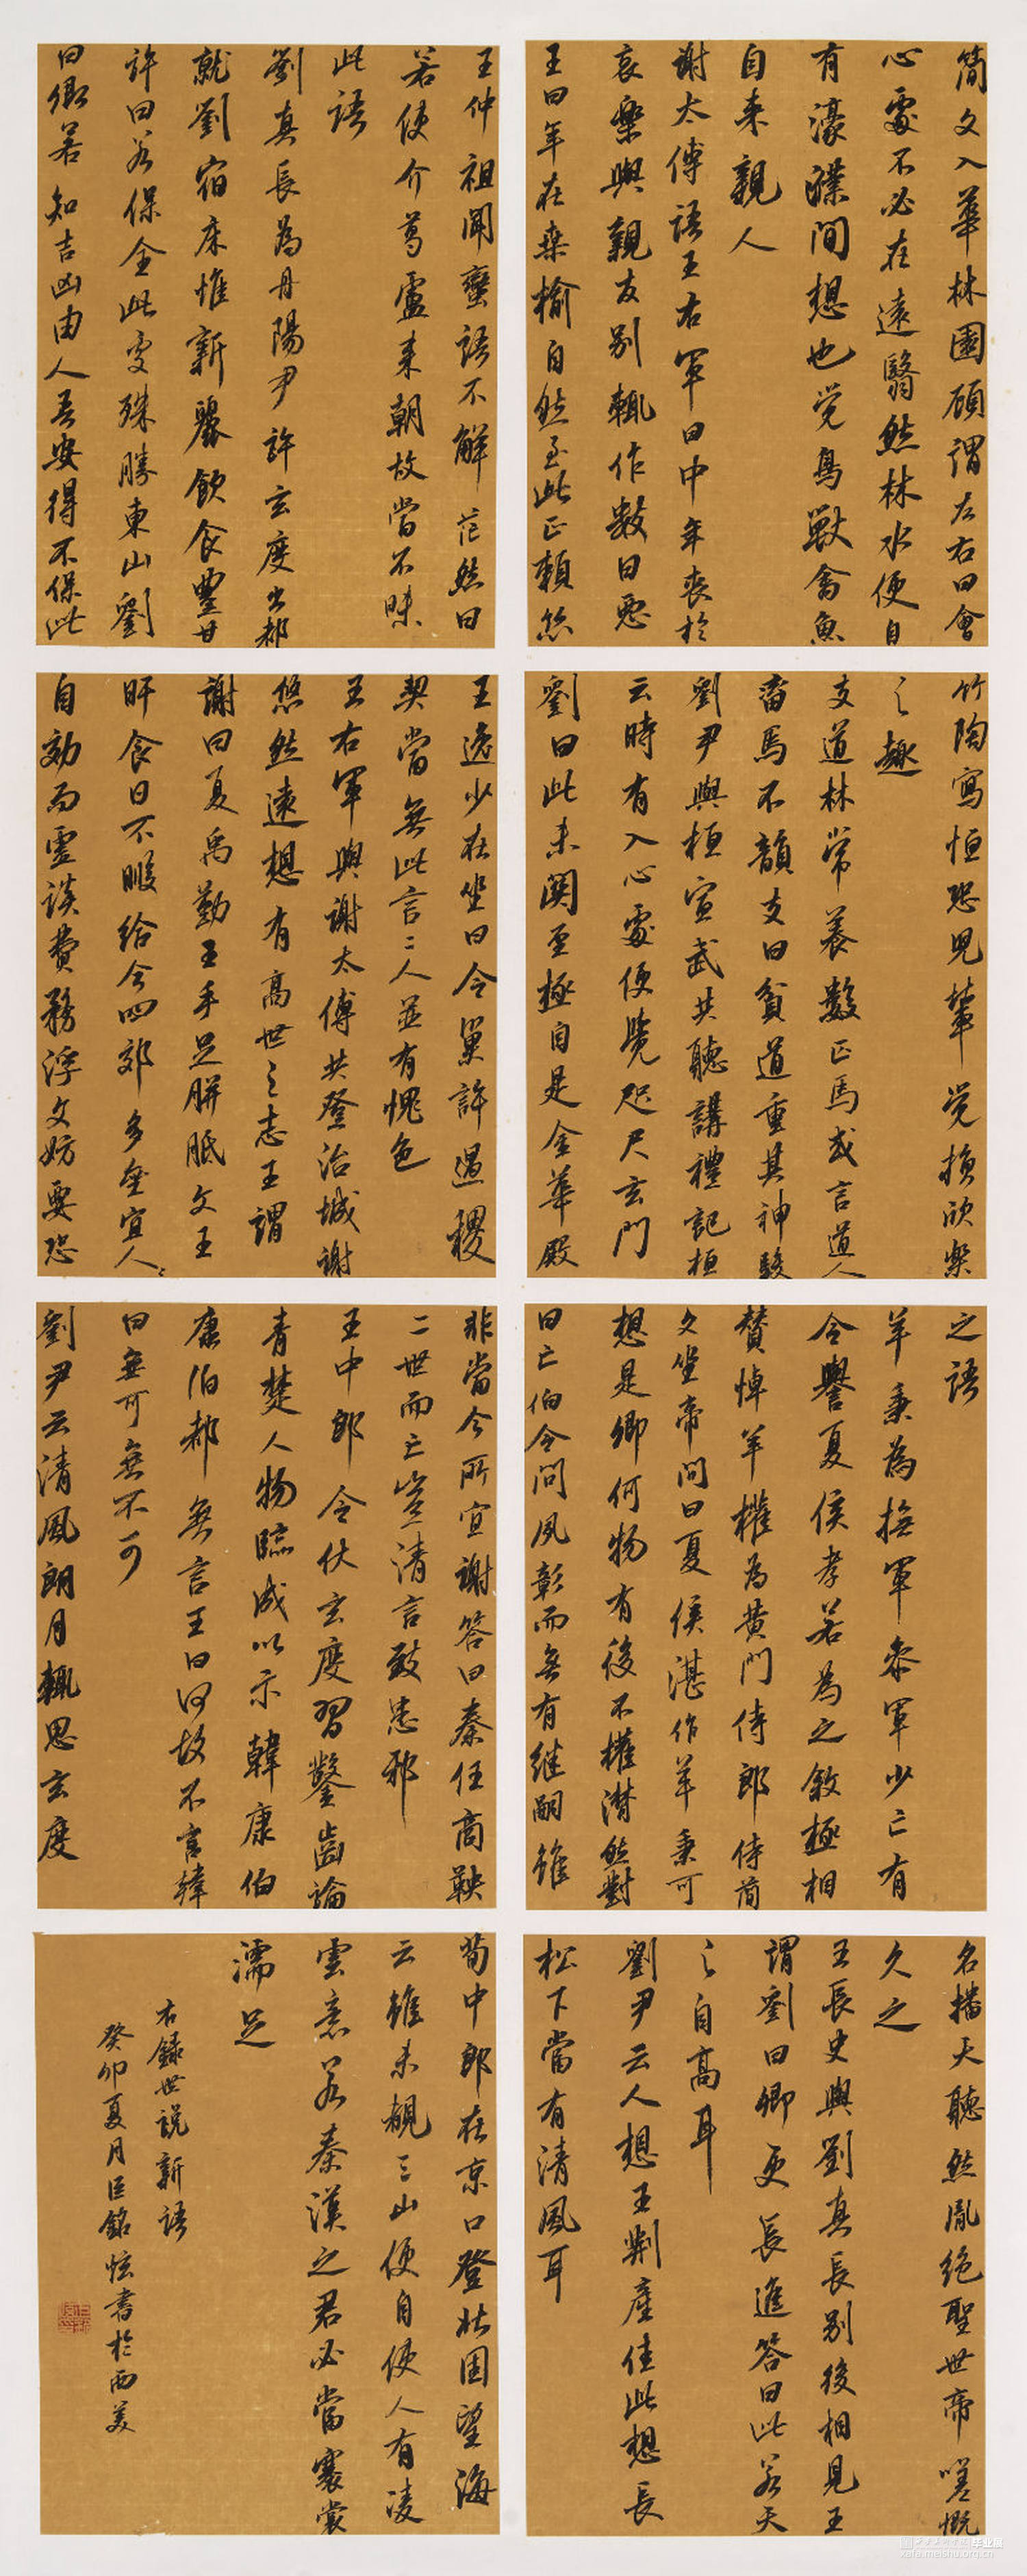 簡文入華林園顧謂左右曰會
心處不必在遠翳然林水便自
有濠濮間想也覺鳥獸禽魚
自来親人
謝太傅語王右軍曰中年喪於
哀樂與親友別輒作數日惡
王曰年在桑榆自然至此正賴絲
竹陶寫恒恐兒輩覺損欣樂
之趣
支道林常養數匹馬或言道人
畜馬不韻支曰貧道重其神駿
劉尹與桓宣武共聽講禮記桓
云時有入心處便覺咫尺玄門
劉曰此未関至極自是金華殿
之語
羊秉為撫軍參軍少亡有
令譽夏侯孝若為之敘極相
贊悼羊權為黃門侍郎侍簡
文坐帝問曰夏侯湛作羊秉可
想是卿何物有後不權潸然對
曰亡伯令問夙彰而無有継嗣雖
名播天聽然胤絕聖世帝嗟慨
久之
王長史與劉真長別後相見王
謂劉曰卿更長進答曰此若天
之自高耳
劉尹云人想王荆產佳此想長
松下當有清風耳
王仲祖聞蠻語不解茫然曰
若使介葛盧来朝故當不昧
此語
劉真長為丹陽尹許玄度出都
就劉宿床帷新麗飲食豐甘
許曰若保全此處殊勝東山劉
曰卿若知吉凶由人吾安得不保此
王逸少在坐曰令巢許遇稷
契當無此言二人並有愧色
王右軍與謝太傅共登冶城謝
悠然遠想有高世之志王謂
謝曰夏禹勤王手足胼胝文王
旰食日不暇給今四郊多壘宜人人
自効而虛談費務浮文妨要恐
非當今所宜謝答曰秦任商鞅
二世而亡豈清言致患邪
王中郎令伏玄度習鑿齒論
青楚人物臨成以示韓康伯
康伯都無言王曰何故不言韓
曰無可無不可
劉尹云清風朗月輒思玄度
荀中郎在京口登北固望海
云雖未覩三山便自使人有淩
雲意若秦漢之君必當褰裳
濡足
右錄世說新語
癸卯夏月臣銘炫書於西美